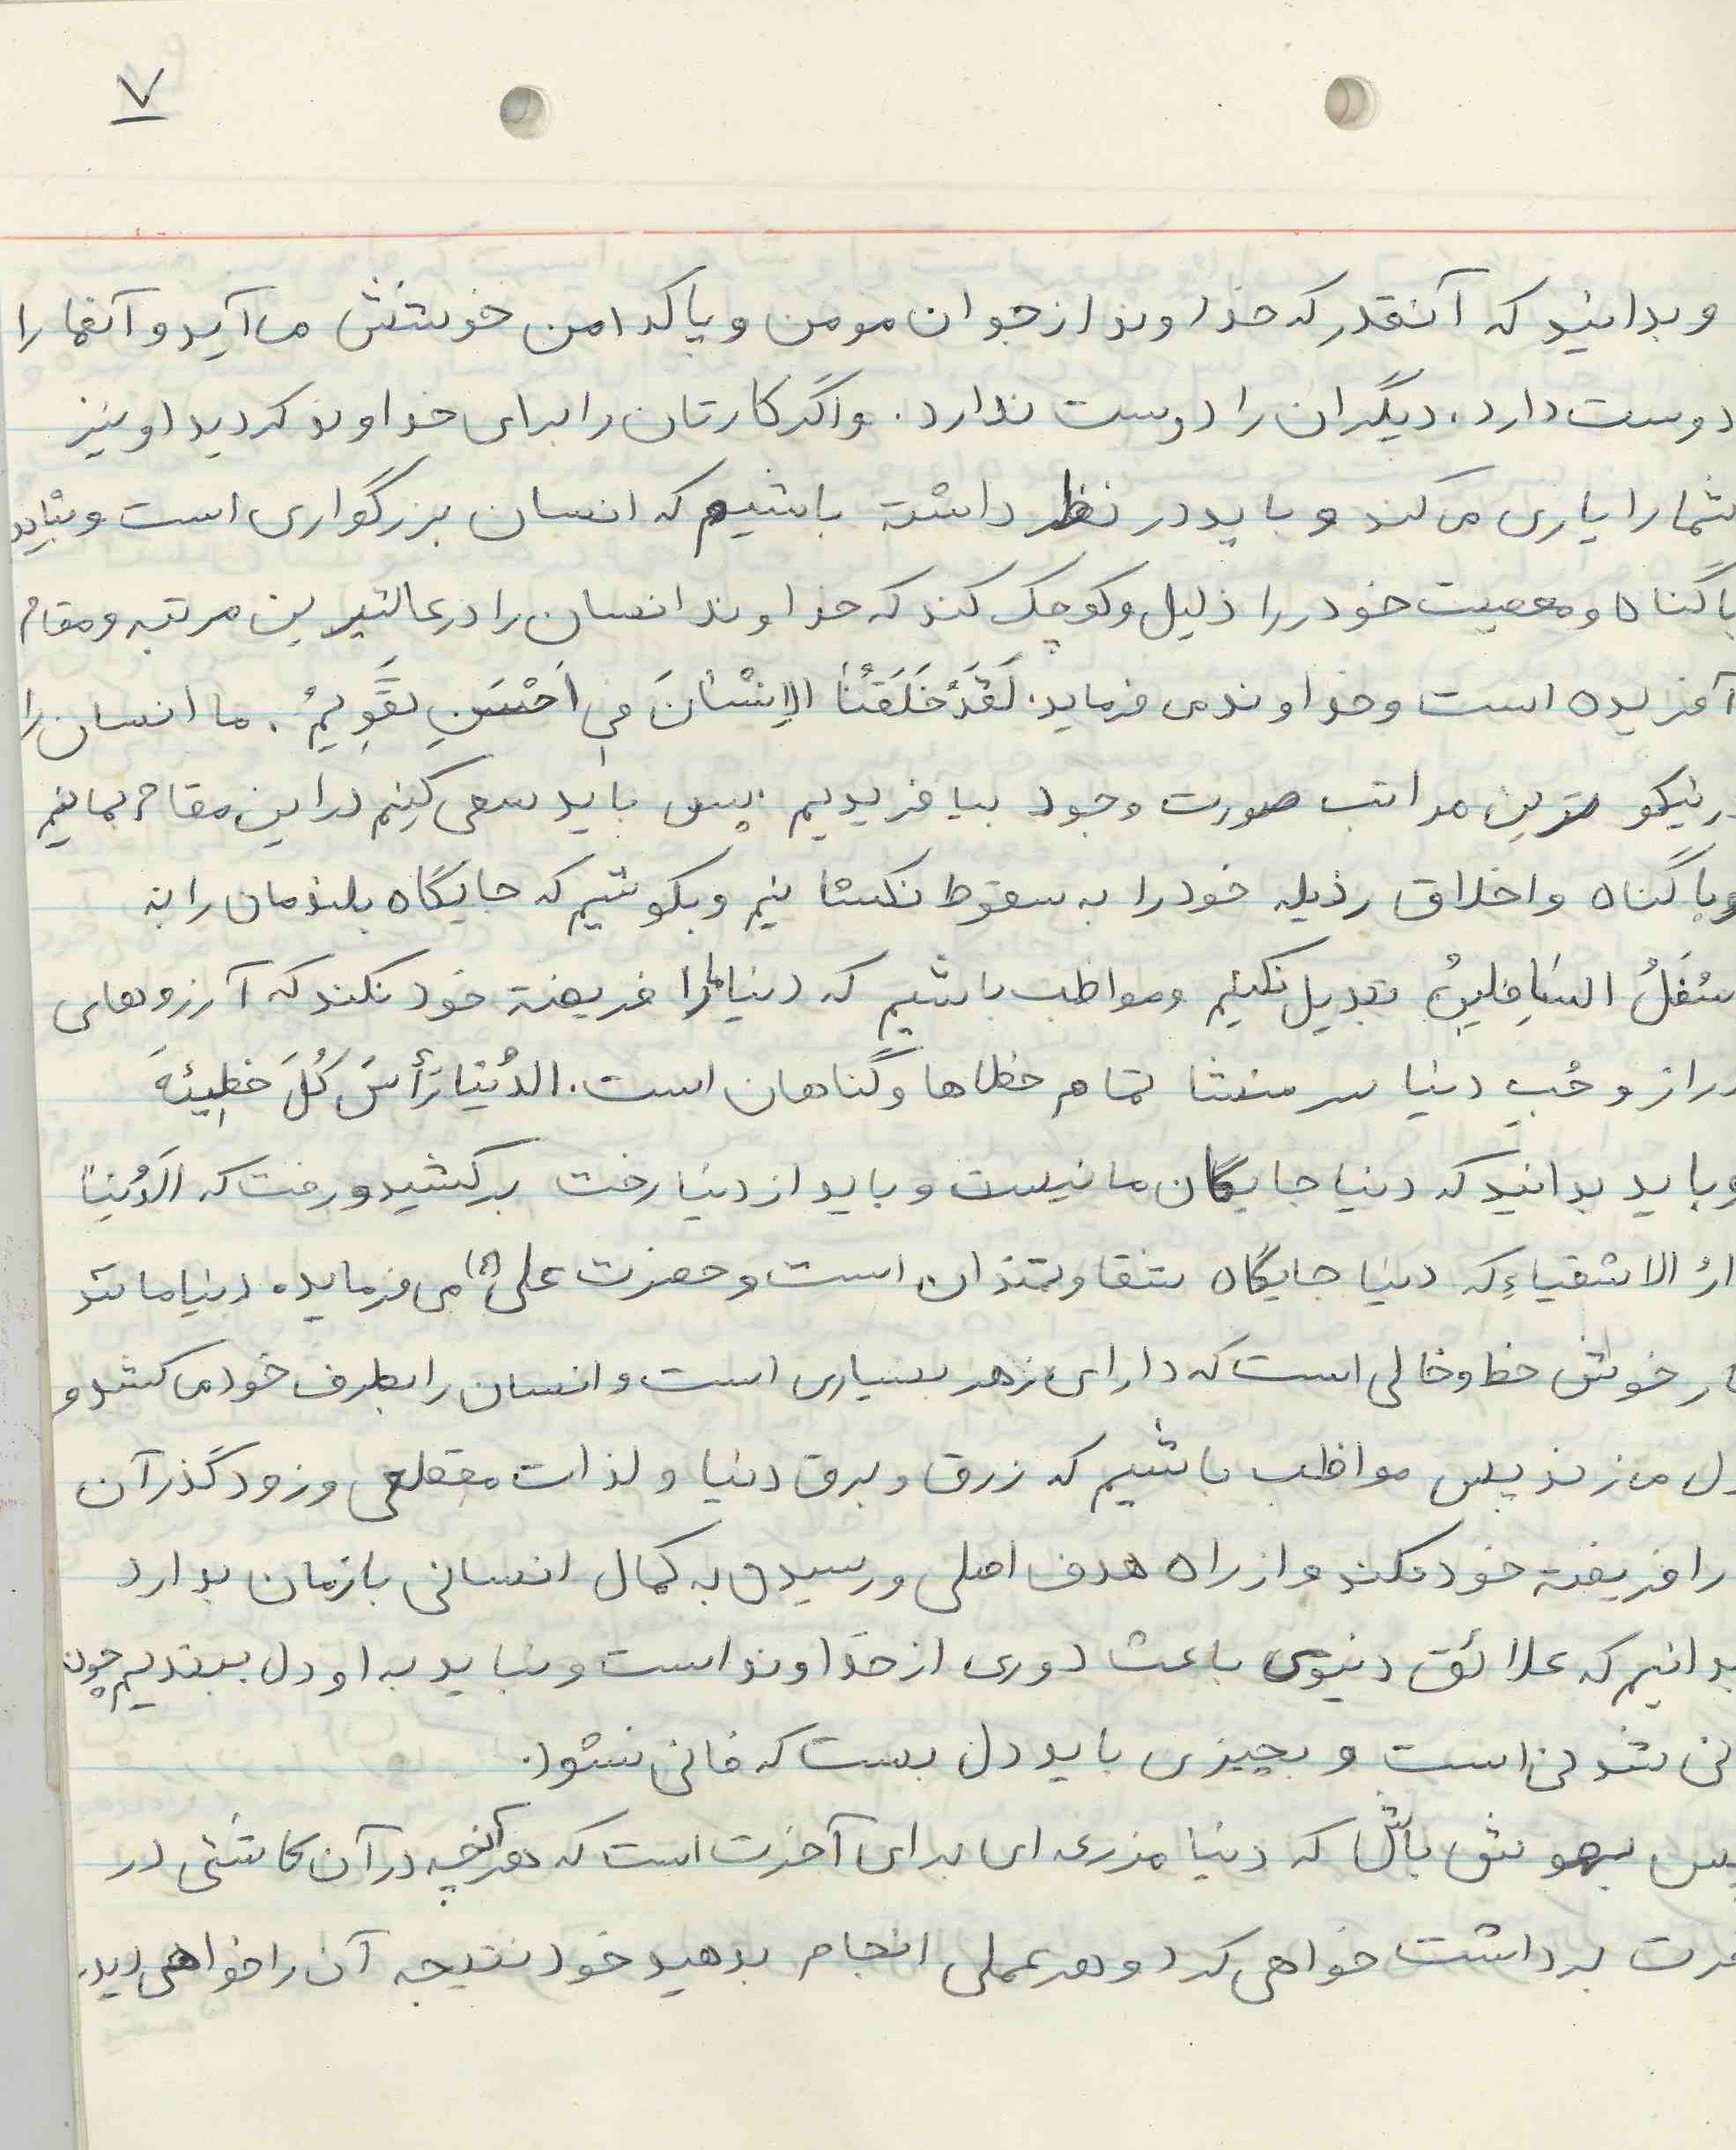 ۷
و بدانید که آنقدر که خداوند از جوان مومن و پاکدامن خوشش می آید و آنها را
دوست دارد، دیگران را دوست ندارد. و اگر کارتان را برای خداوند کردید او نیز
شما را یاری می کند و باید در نظر داشته باشیم که انسان بزرگواری است و نباید
با گناه و معصیت خود را ذلیل و کوچک کند که خداوند انسان را در عالیترین مرتبه و مقام
آفریده است و خداوند می فرماید: لَقَدْ خَلَقْنَا الإِنْسٰانَ فِی اَحْسَنِ تَقَّوِیمُ. ما انسان را
در نیکو ترین مراتب صورت وجود بیافریدیم. پس باید سعی کنیم در این مقام بمانیم
و با گناه و اخلاق رذیله خود را به سقوط نکشانیم و بکوشیم که جایگاه بلندمان را به
سْفَلُ السٰافِلِینُ تبدیل نکنیم و مواظب باشیم که دنیا ما را فریفته خود نکند که آرزوهای
دراز و حُبِ دنیا سر منشا تمام خطاها و گناهان است. الدُنْیا رَأسَ کُلَ خطِیئهَ
و باید بدانید که دنیا جایگان ما نیست و باید از دنیا رخت برکشید و رفت که اَلدُنیا
ارُ الاشقیاءِ که دنیا جایگاه شقاوتمندان است و حضرت علی (ع) می فرماید، دنیا مانند
ار خوش خط و خالی است که دارای زهر بسیاری است و انسان را بطرف خود می کشد و
ول می زند پس مواظب باشیم که زرق و برق دنیا و لذات مقطعی و زودگذر آن
را فریفته خود نکند و از راه هدف اصلی و رسیدن به کمال انسانی بازمان بدارد
بدانیم که علائق دنیوی باعث دوری از خداوند است و نباید به او دل ببندیم چون
نی شدنی است و بچیزی باید دل بست که فانی نشود.
پس بهوش باش که دنیا مزرعه ای برای آخرت است که هر آنچه در آن کاشتی در
خرت برداشت خواهی کرد و هر عملی انجام بدهید خود نتیجه آن را خواهی دید.